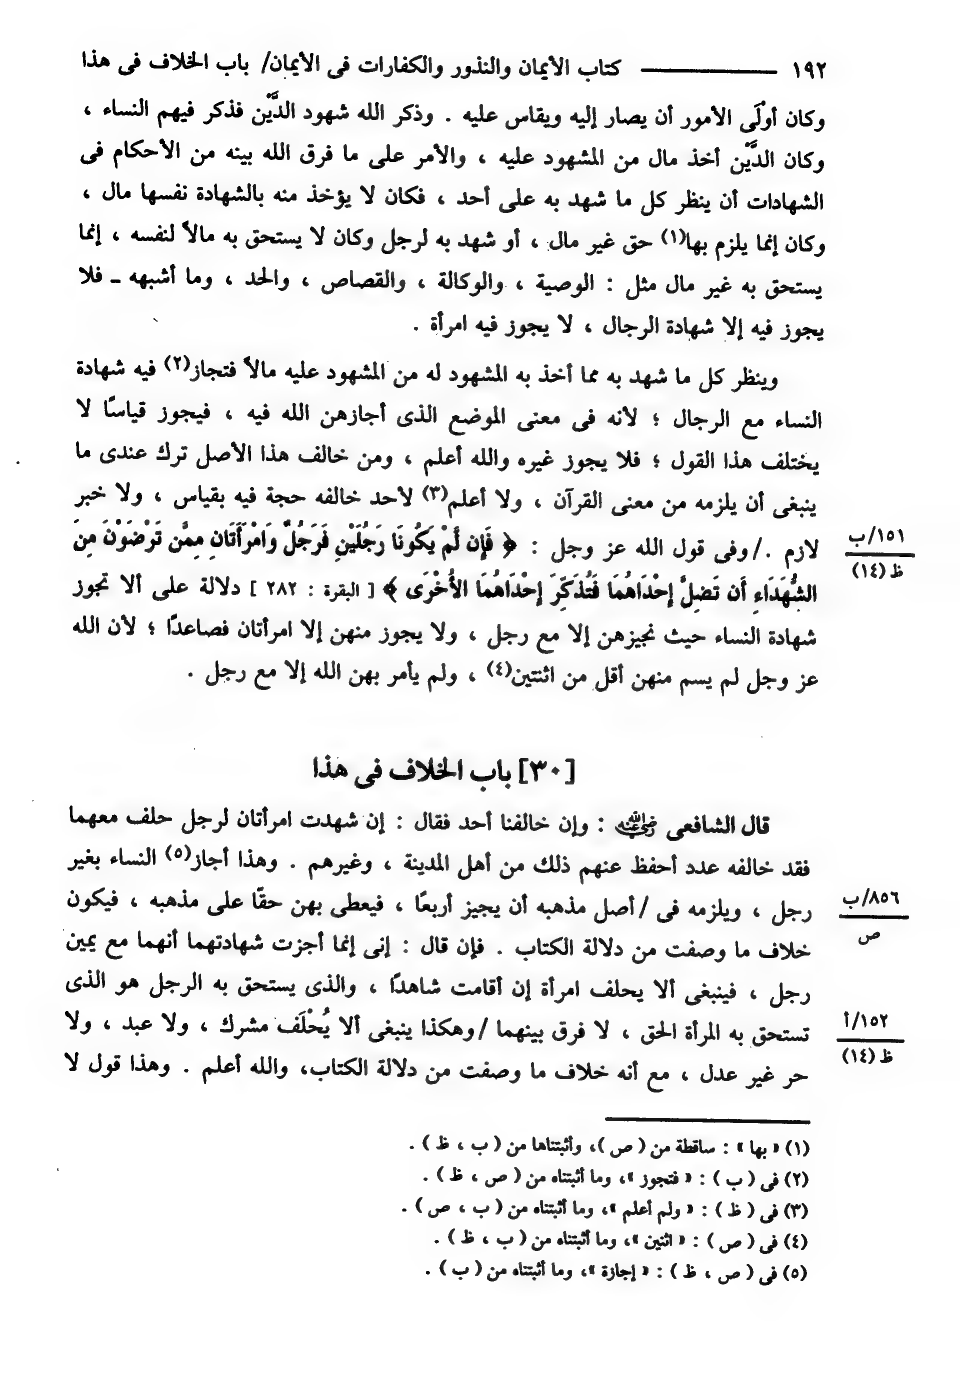 ١٩٢ ــــــــــــــ كتاب الأيمان والنذور والكفارات فى الأيمان/ باب الخلاف فى هذا
وكان أوْلَى الأمور أن يصار إليه ويقاس عليه . وذكر الله شهود الدَّيْن فذكر فيهم النساء ،
وكان الدَّيْن أخذ مال من المشهود عليه ، والأمر على ما فرق الله بينه من الأحكام فى
الشهادات أن ينظر كل ما شهد به على أحد ، فكان لا يؤخذ منه بالشهادة نفسها مال ،
وكان إنما يلزم بها(١) حق غير مال ، أو شهد به لرجل وكان لا يستحق به مالاً لنفسه ، إنما
يستحق به غير مال مثل : الوصية ، والوكالة ، والقصاص ، والحد ، وما أشبهه ـ فلا
يجوز فيه إلا شهادة الرجال ، لا يجوز فيه امرأة .
وينظر كل ما شهد به مما أخذ به المشهود له من المشهود عليه مالاً فتجاز(٢) فيه شهادة
النساء مع الرجال ؛ لأنه فى معنى الموضع الذى أجازهن الله فيه ، فيجوز قياسًا لا
يختلف هذا القول ؛ فلا يجوز غيره والله أعلم ، ومن خالف هذا الأصل ترك عندى ما
ينبغى أن يلزمه من معنى القرآن ، ولا أعلم(٣) لأحد خالفه حجة فيه بقياس ، ولا خبر
لازم ./ وفى قول الله عز وجل : ﴿ فَإِن لَّمْ يَكُونَا رَجُلَيْنِ فَرَجُلٌ وَامْرَأَتَانِ مِمَّن تَرْضَوْنَ مِنَ
١٥١/ب
ظ (١٤)
الشُّهَدَاءِ أَن تَضِلَّ إِحْدَاهُمَا فَتُذَكِّرَ إِحْدَاهُمَا الأُخْرَى ﴾ [ البقرة : ٢٨٢ ] دلالة على ألا تجوز
شهادة النساء حيث نجيزهن إلا مع رجل ، ولا يجوز منهن إلا امرأتان فصاعدًا ؛ لأن الله
عز وجل لم يسم منهن أقل من اثنتين(٤) ، ولم يأمر بهن الله إلا مع رجل .
[٣٠] باب الخلاف فى هذا
قال الشافعى رضي الله عنه : وإن خالفنا أحد فقال : إن شهدت امرأتان لرجل حلف معهما
فقد خالفه عدد أحفظ عنهم ذلك من أهل المدينة ، وغيرهم . وهذا أجاز(٥) النساء بغير
رجل ، ويلزمه فى / أصل مذهبه أن يجيز أربعًا ، فيعطى بهن حقًا على مذهبه ، فيكون
٨٥٦/ب
ص
خلاف ما وصفت من دلالة الكتاب . فإن قال : إنى إنما أجزت شهادتهما أنهما مع يمين
رجل ، فينبغى ألا يحلف امرأة إن أقامت شاهدًا ، والذى يستحق به الرجل هو الذى
تستحق به المرأة الحق ، لا فرق بينهما /وهكذا ينبغى ألا يُحْلَف مشرك ، ولا عبد ، ولا
١٥٢/أ
ظ (١٤)
حر غير عدل ، مع أنه خلاف ما وصفت من دلالة الكتاب، والله أعلم . وهذا قول لا
(١) « بها » : ساقطة من ( ص )، وأثبتناها من ( ب ، ظ ) .
(٢) فى ( ب ) : « فتجوز »، وما أثبتناه من ( ص ، ظ ) .
(٣) فى ( ظ ) : « ولم أعلم »، وما أثبتناه من ( ب ، ص ) .
(٤) فى ( ص ) : « اثنين »، وما أثبتناه من ( ب ، ظ ) .
(٥) فى ( ص ، ظ ) : « إجازة »، وما أثبتناه من ( ب ) .